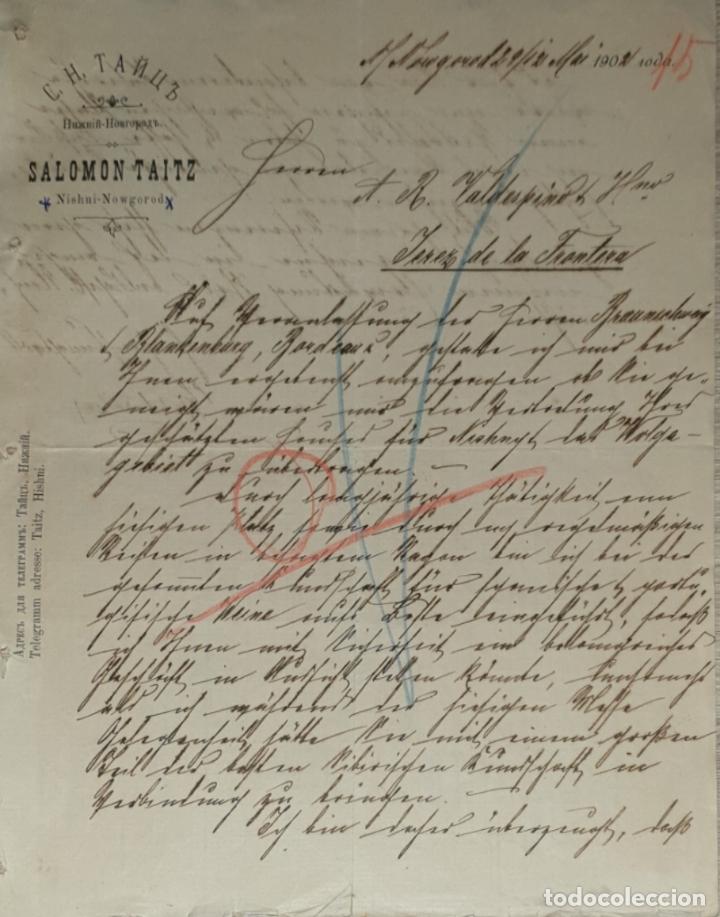 С. Н. ТАЙЦЪ
Нижній-Новгородъ.
SALOMON TAITZ
Nishni-Nowgorod
N/ Nowgorod 29/12 Mai 1902 года.
45
Herren
A. R. Valdespino & Hno
Jerez de la Frontera
Auf Veranlassung der Herren Braunschweig
& Blankenburg, Bordeaux, gestatte ich mir bei
Ihnen ergebenst anzufragen ob Sie ge-
neigt wären mir die Vertretung Ihres
geschätzten Hauses für Nishny & das Wolga-
gebiet zu übertragen. —
Durch langjährige Thätigkeit am
hiesigen Platz sowie durch regelmäßigen
Reisen in Rayon bin ich bei der
gesammten Kundschaft für spanische & portu-
gisische Weine aufs Beste eingeführt, sodaß
ich Ihnen mit Sicherheit ein
Geschäft in Aussicht stellen könnte,
als ich während der hiesigen Messe
Gelegenheit hätte Sie mit einem großen
Teil der besten Sibirischen Kundschaft in
Verbindung zu bringen. —
Ich bin daher überzeugt, daß
Адресъ для телеграммъ: Тайцъ, Нижній.
Telegramm adresse: Taitz, Nishni.
todocoleccion